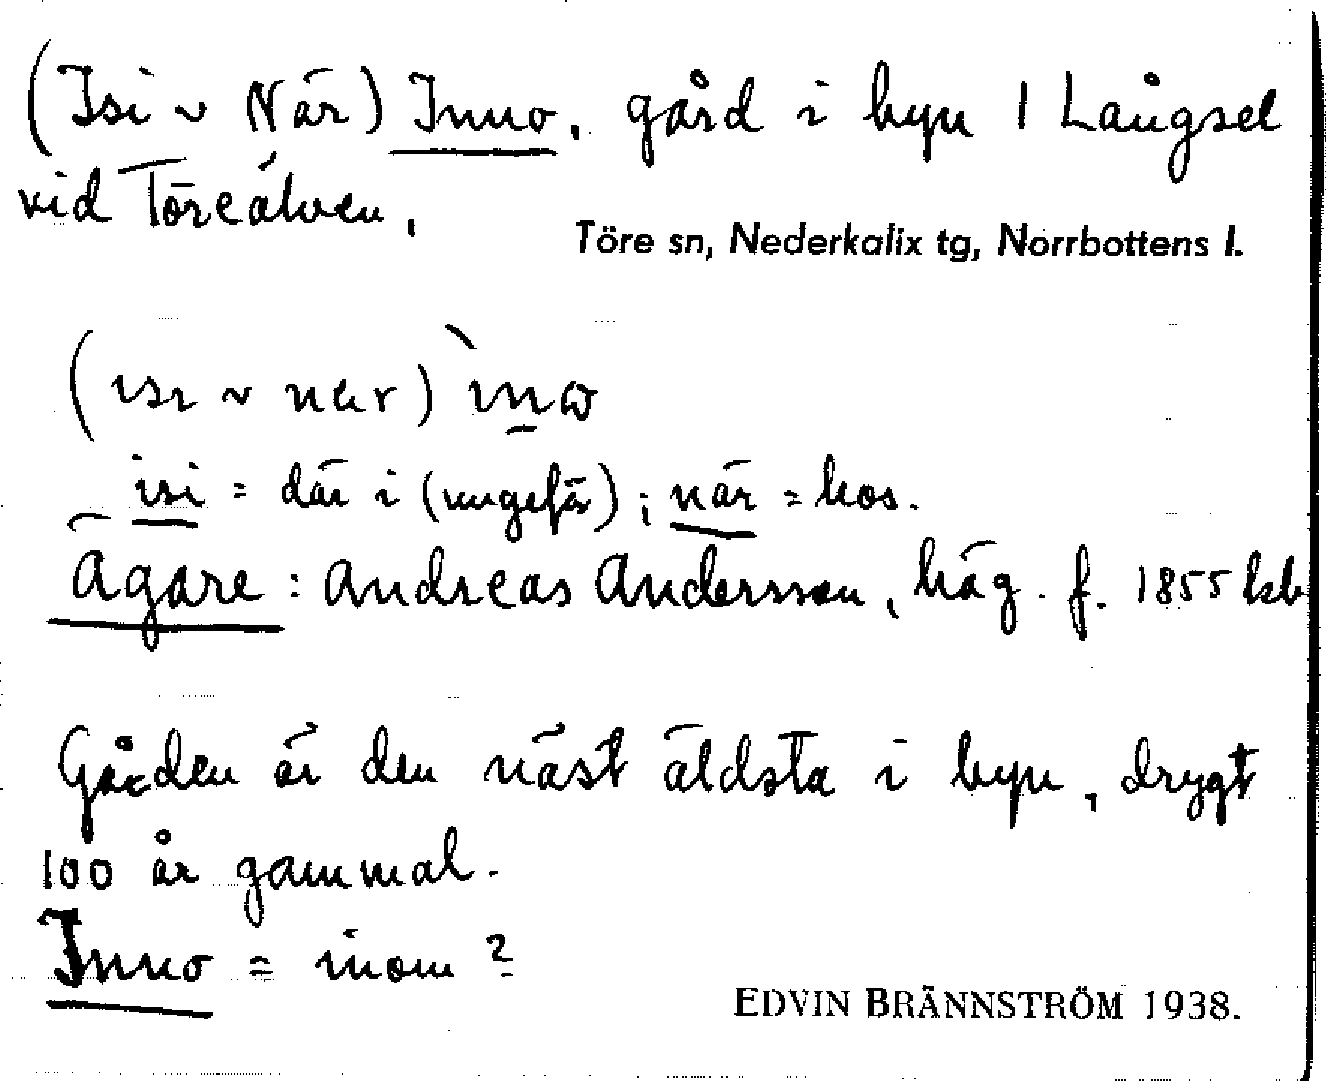 (Isi ~ När) Inno, gård i byn 1 Långsel
vid Töreälven,
Töre sn, Nederkalix tg, Norrbottens l.
(ɩsɩ ~ nær)
isi = där i (ungefär); när = hos.
Ägare: Andreas Andersson, häg. f. 1855
Gården är den näst äldsta i byn, drygt
100 år gammal.
Inno = inom?
EDVIN BRÄNNSTRÖM 1938.